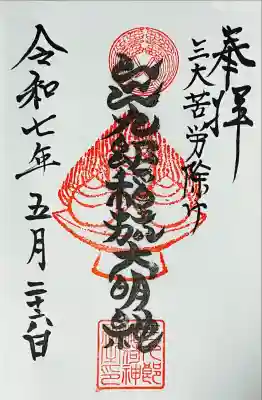 奉拝
三大苦労除け
稲荷大明神
令和七年 五月 二十六日